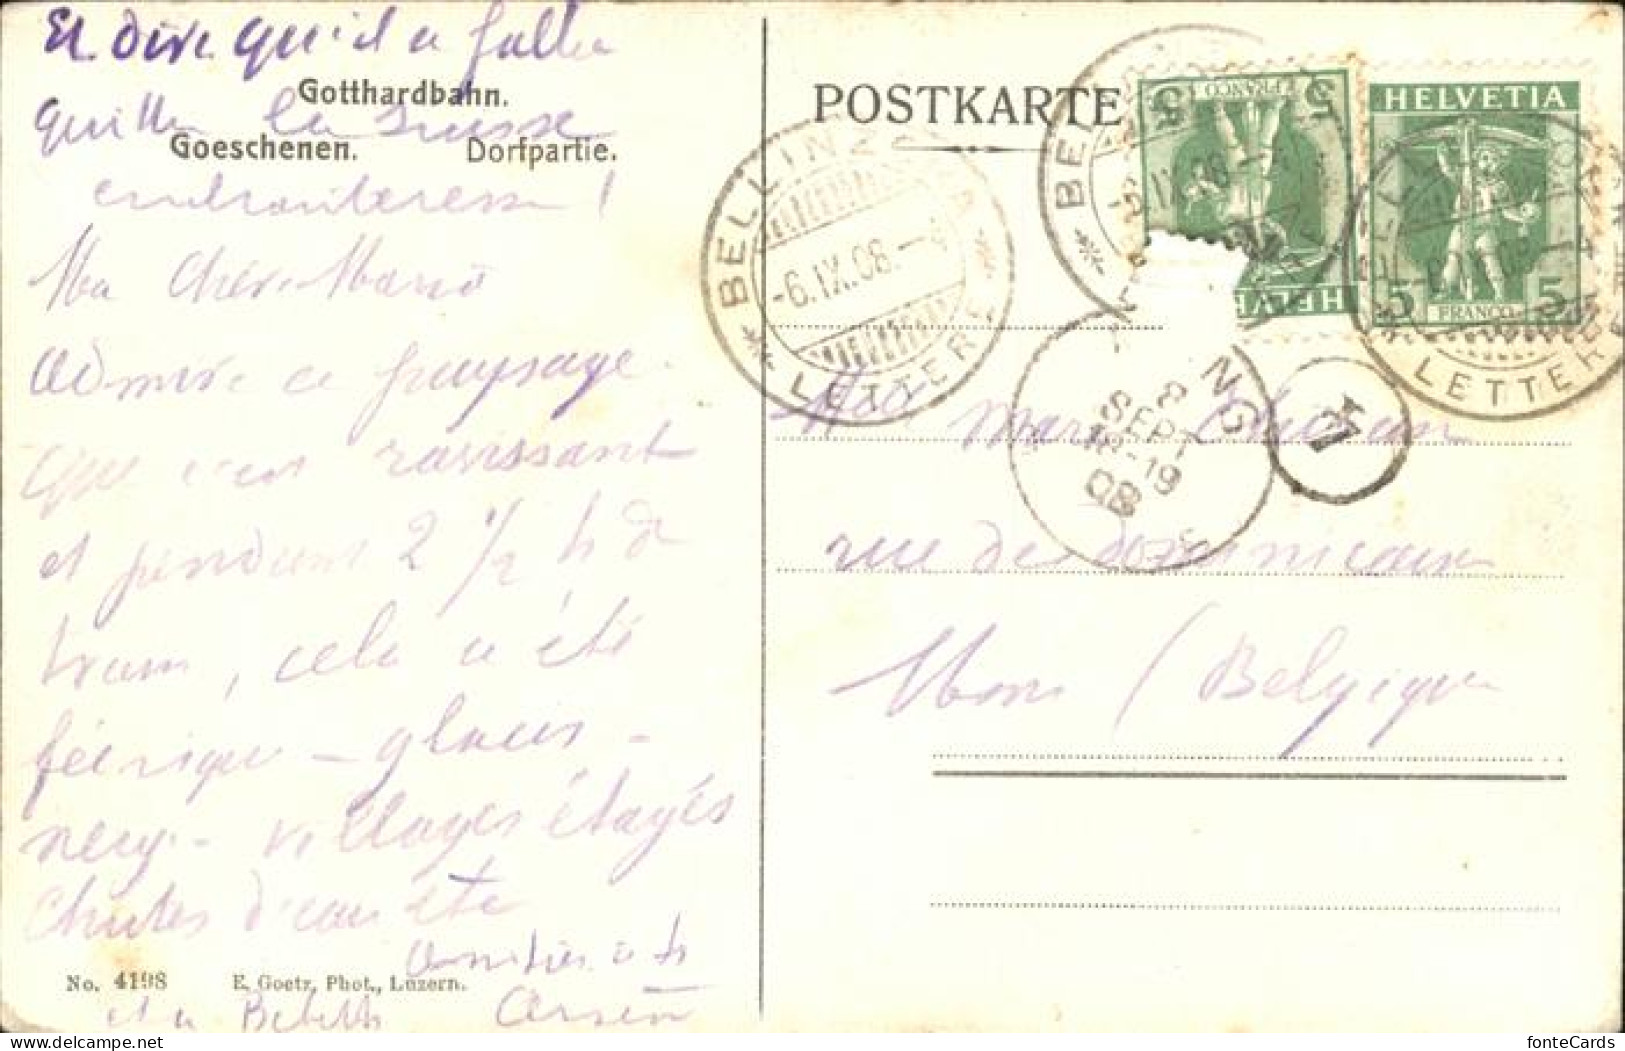 Et dire qu'il a fallu
Gotthardbahn.
quitter la Suisse
Goeschenen. Dorfpartie.
Ma Chère Maria
Admire ce paysage
que c'est ravissant
et pendant 2 1/2 h de
tram, cela a été
féerique – glaciers –
neige – villages étagés
chutes d'eau etc
No. 4198 E. Goetz, Phot., Luzern.
et à
POSTKARTE
HELVETIA
5 5
FRANCO
HELV
5 5
FRANCO
BELLINZONA
-6.IX.08.–
LETTERE
BEL
LETTERE
NG
8
SEPT
18-19
08
rue des Dominicains
Mons (Belgique
fonteCards
delcampe.net